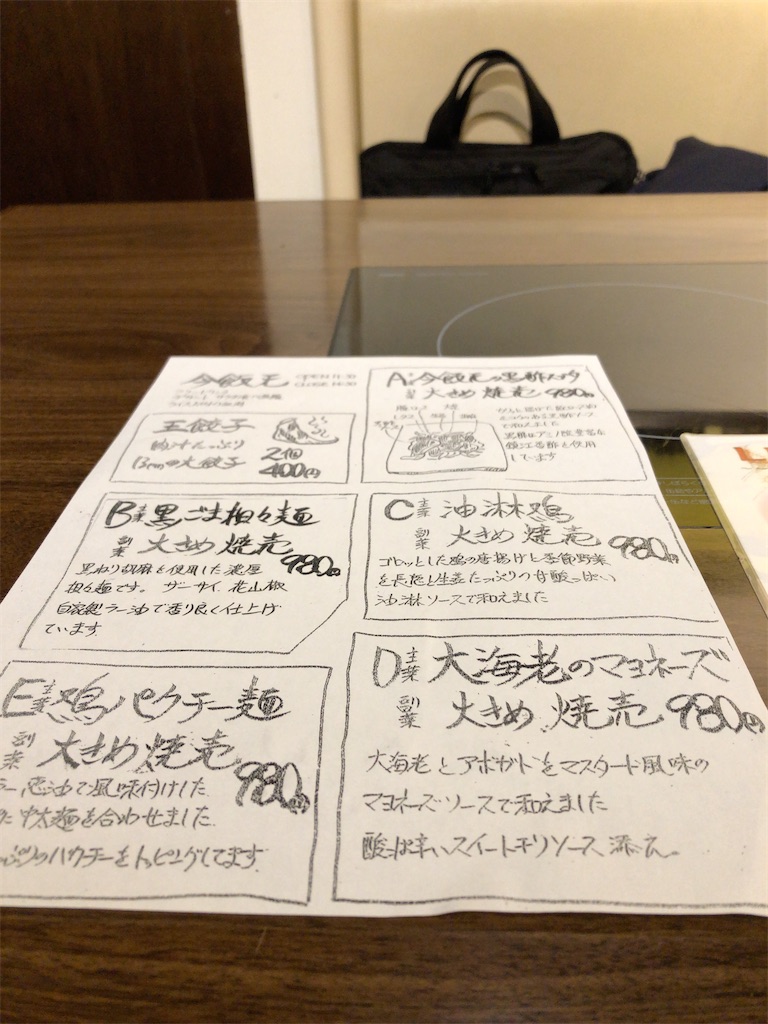 OPEN 11:30
CLOSE 14:30
玉餃子
肉汁たっぷり
大餃子
2個
400円
A 主菜
黒酢
副菜 大きめ 焼売 980円
黒酢はアミノ酸豊富な
鎮江香酢を使用
しています
B 主菜 黒ごま担々麺
副菜 大きめ 焼売 980円
黒ねり胡麻を使用した濃厚
担々麺です。ザーサイ、花山椒
自家製ラー油で香り良く仕上げ
ています
C 主菜 油淋鶏
副菜 大きめ 焼売 980円
ゴロッとした鶏の唐揚げと季節野菜
を長葱と生姜たっぷりの甘酸っぱい
油淋ソースで和えました
D 主菜 大海老のマヨネーズ
副菜 大きめ 焼売 980円
大海老とアボガドをマスタード風味の
マヨネーズソースで和えました
酸っぱ辛いスイートチリソース添え。
E 主菜 鶏パクチー麺
副菜 大きめ 焼売 980円
油で風味付けした
中太麺を合わせました
ぷりのパクチーをトッピングしてます